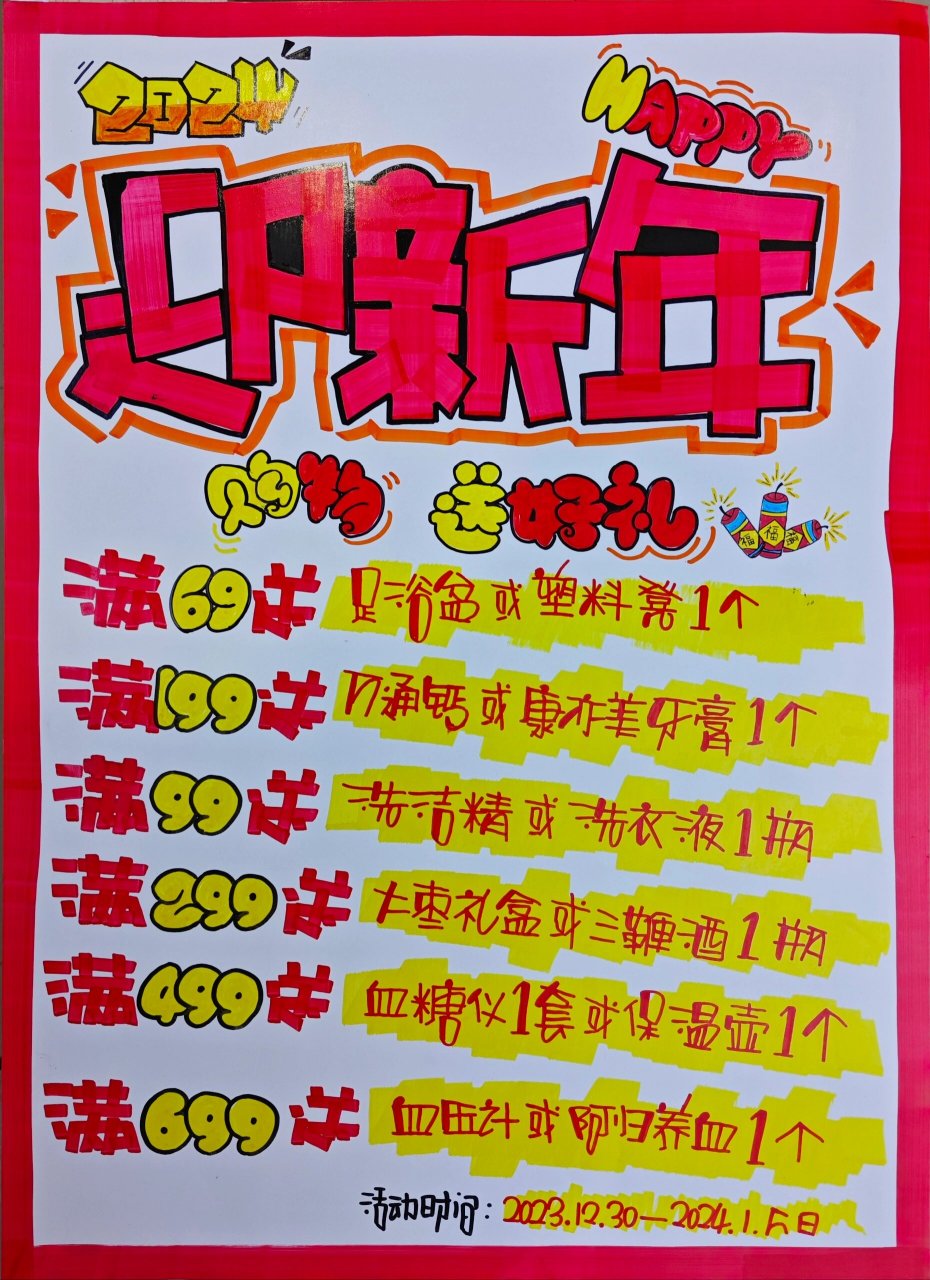 2024 HAPPY
迎新年
购物 送好礼
福 福 福
满69送 足浴盆或塑料凳1个
满199送 万通钙或康亦美牙膏1个
满99送 洗洁精或洗衣液1瓶
满299送 大枣礼盒或三鞭酒1瓶
满499送 血糖仪1套或保温壶1个
满699送 血压计或阿归养血1个
活动时间：2023.12.30—2024.1.5日